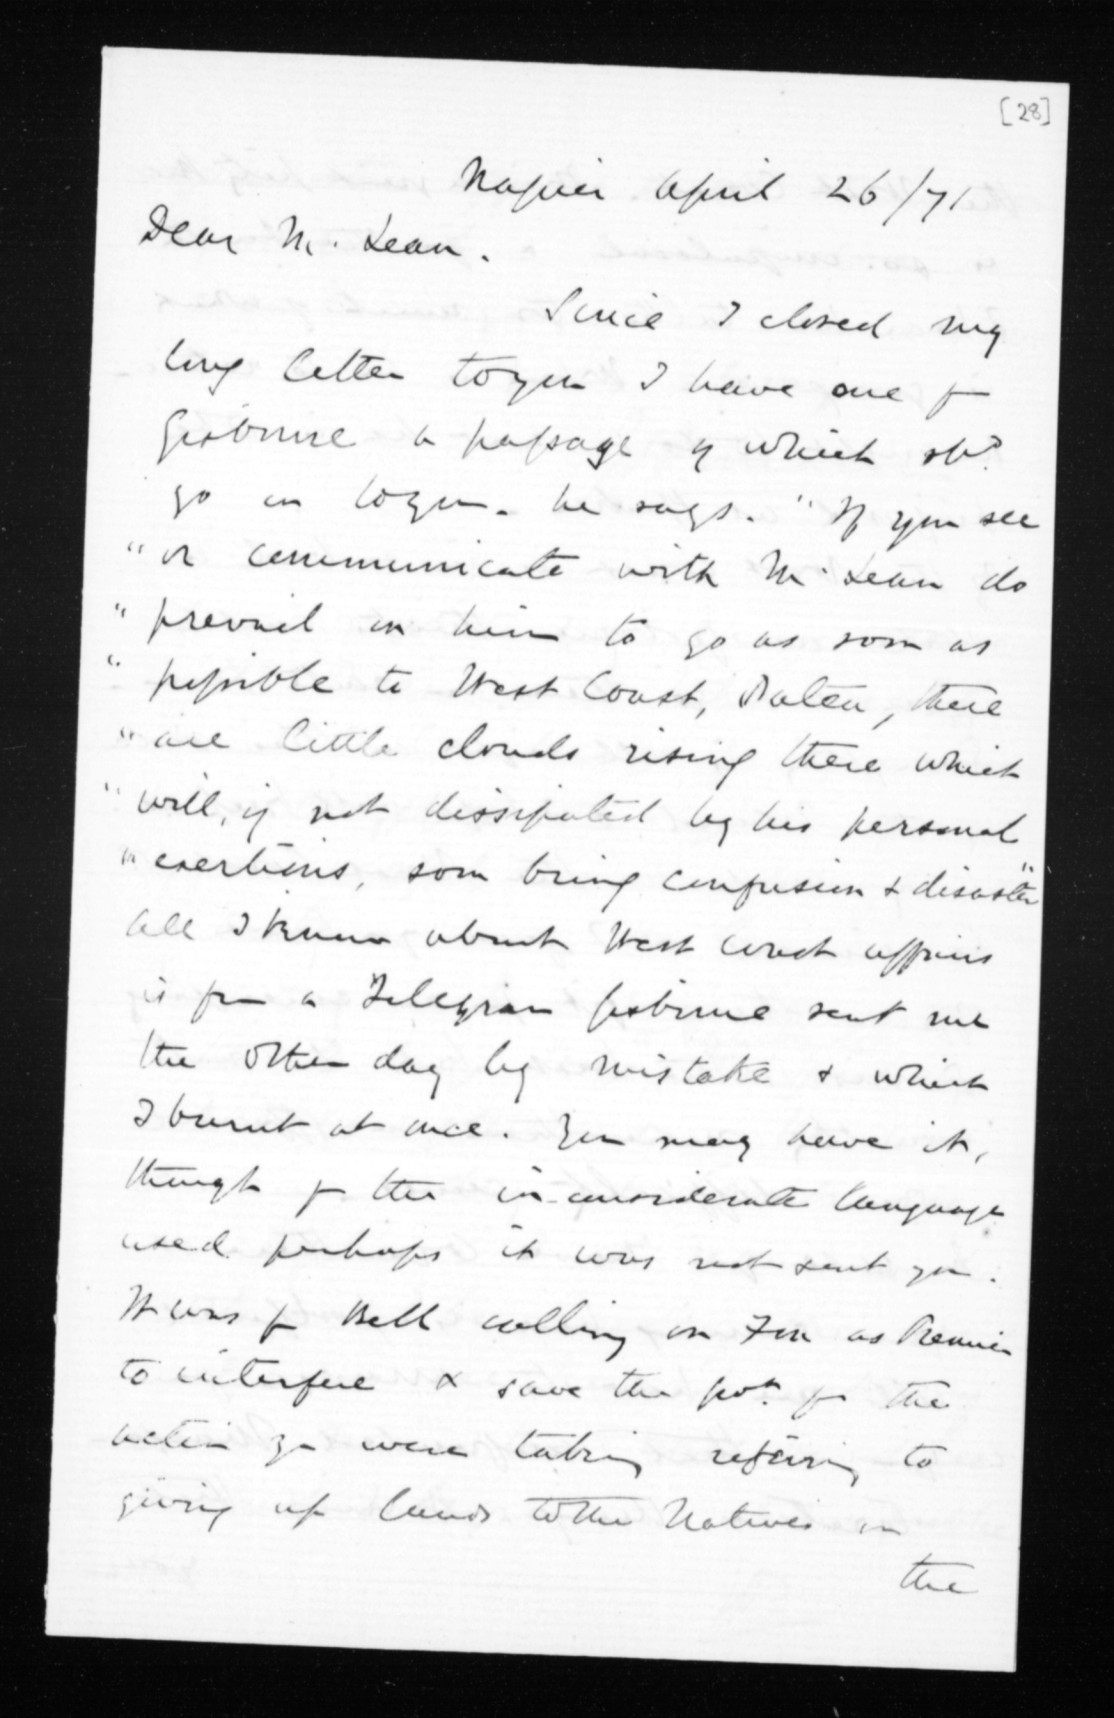 [28]
Napier April 26/71
Dear McLean.
Since I closed my
long letter to you I have one fr
Gisborne a passage of which shd
go on to you. he says. "If you see
"or communicate with McLean do
"prevail on him to go as soon as
"possible to West Coast, Patea, there
"are little clouds rising there which
"will, if not dissipated by his personal
"exertions, soon bring confusion & disaster"
All I know about West Coast affairs
is from a Telegram Gisborne sent me
the other day by mistake & which
I burnt at once. You may have it,
though fr the inconsiderate language
used perhaps it was not sent you.
It was fr Bell calling on Fox as Premier
to interfere & save the Govt. fr the
action you were taking referring to
giving up lands to the Natives on
the